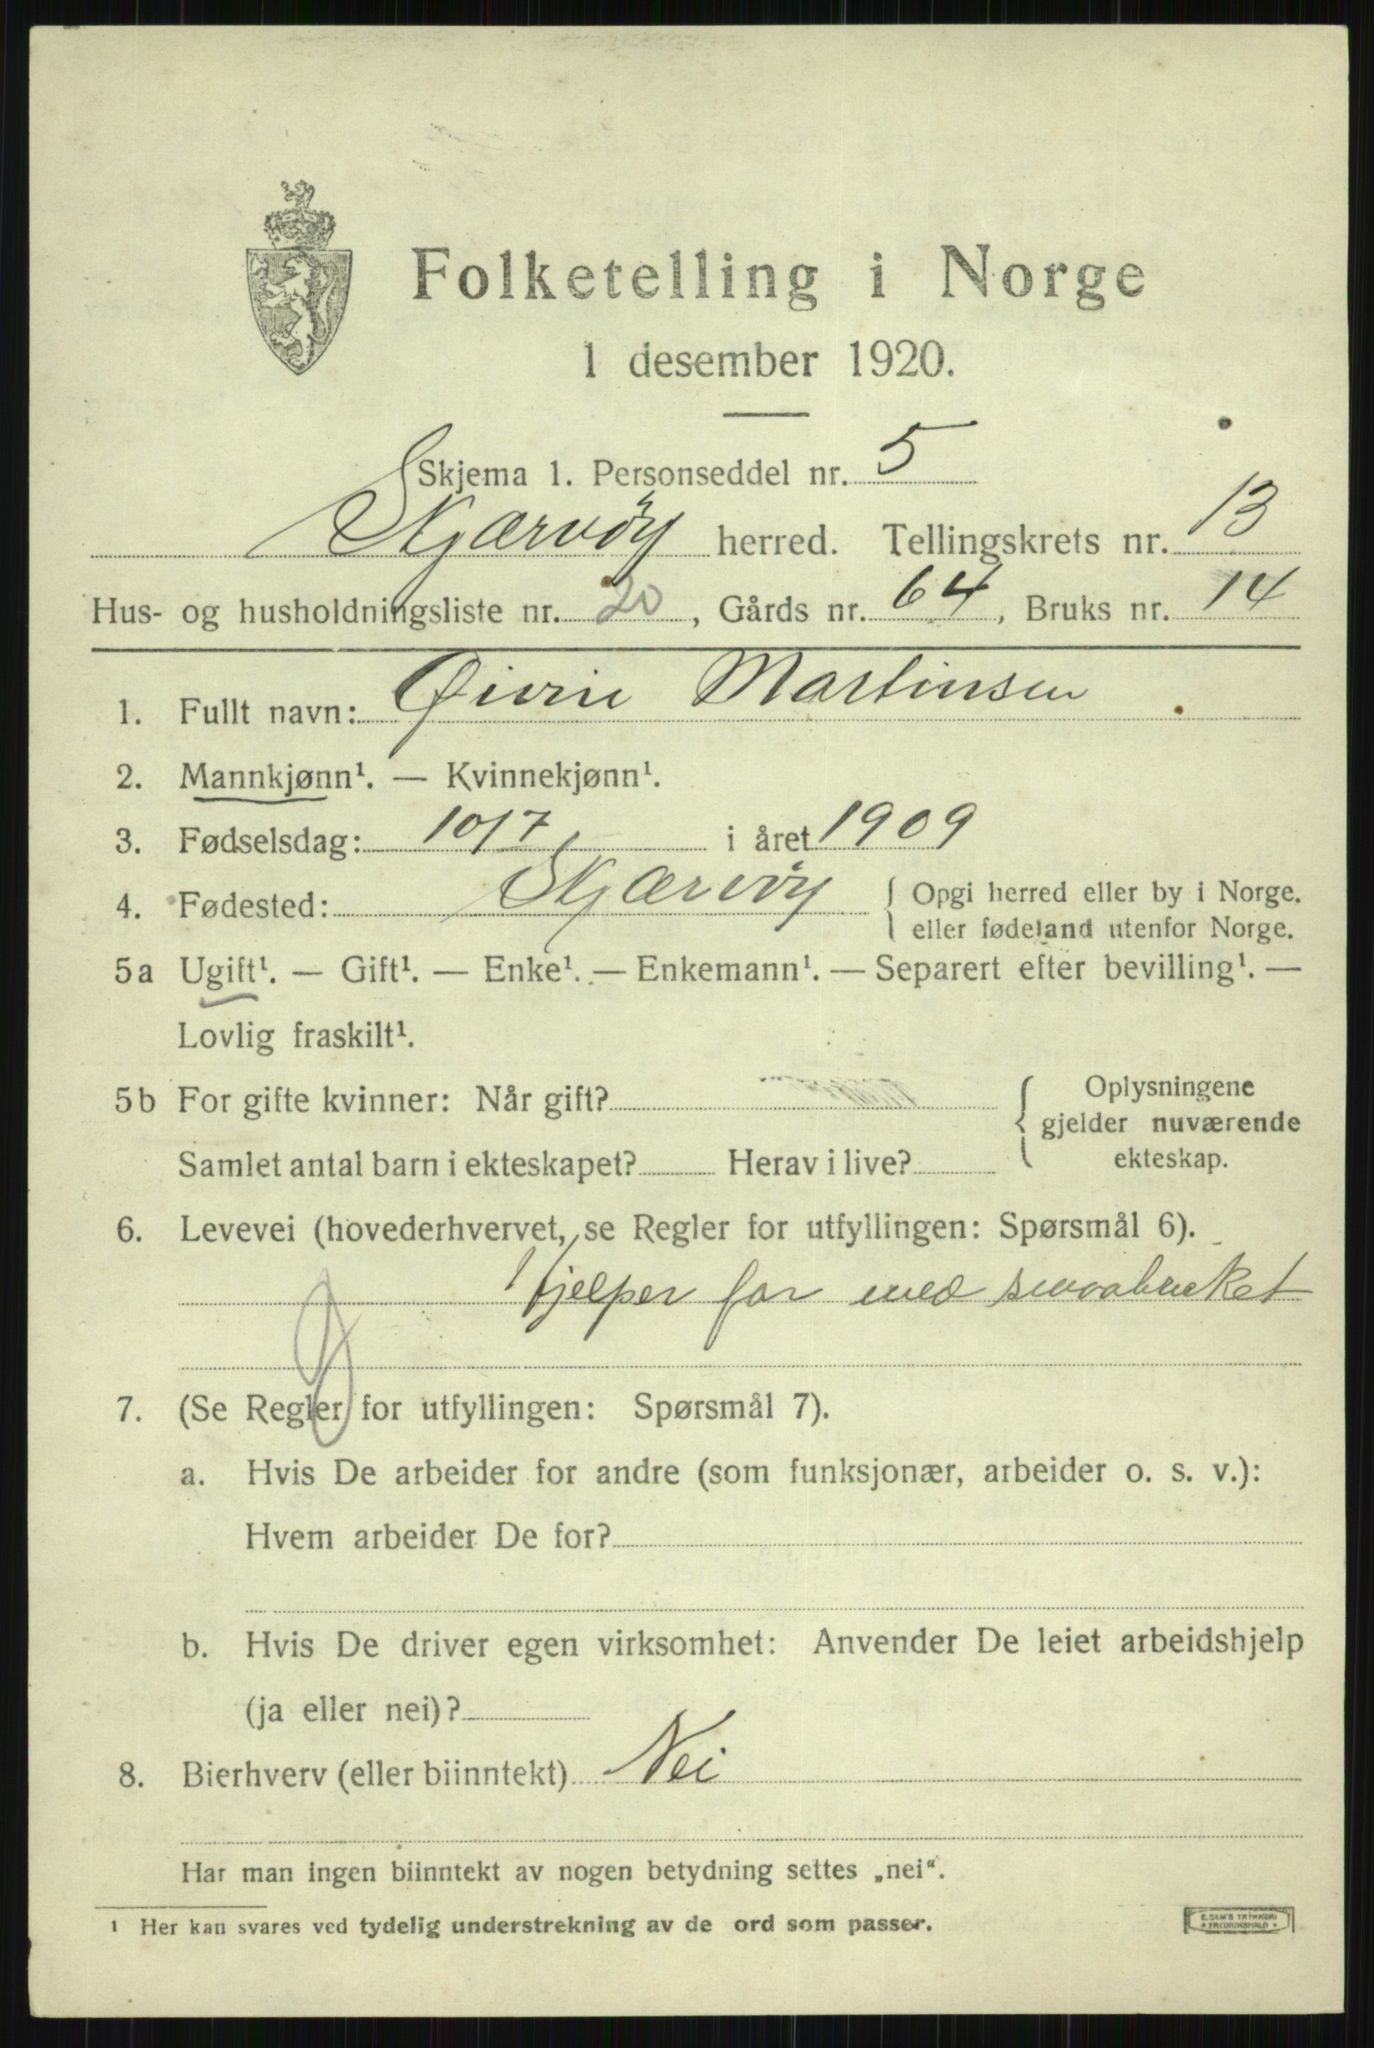 Folketelling i Norge
1 desember 1920.
Skjema 1. Personseddel nr. 5
Skjærvöy herred. Tellingskrets nr. 13
Hus- og husholdningsliste nr. 20, Gårds nr. 64, Bruks nr. 14
1. Fullt navn: Øivin Martinsen
2. Mannkjønn¹. — Kvinnekjønn¹.
3. Fødselsdag: 10/7 i året 1909
4. Fødested: Skjærvöy { Opgi herred eller by i Norge.
eller fødeland utenfor Norge.
5a Ugift¹. — Gift¹. — Enke¹. — Enkemann¹. — Separert efter bevilling¹. —
Lovlig fraskilt¹.
5b For gifte kvinner: Når gift? { Oplysningene
gjelder nuværende
Samlet antal barn i ekteskapet? Herav i live? ekteskap.
6. Levevei (hovederhvervet, se Regler for utfyllingen: Spørsmål 6).
Hjelper far med smaabruket
7. (Se Regler for utfyllingen: Spørsmål 7).
a. Hvis De arbeider for andre (som funksjonær, arbeider o. s. v.):
Hvem arbeider De for?
b. Hvis De driver egen virksomhet: Anvender De leiet arbeidshjelp
(ja eller nei)?
8. Bierhverv (eller biinntekt) Nei
Har man ingen biinntekt av nogen betydning settes „nei“.
¹ Her kan svares ved tydelig understrekning av de ord som passer.
E. SEM'S TRYKKERI
FREDRIKSHALD